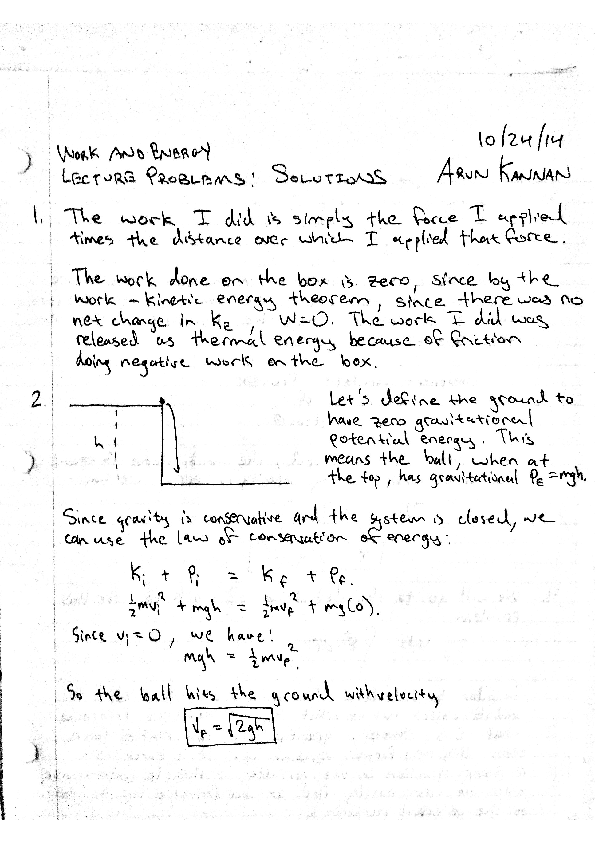 10/24/14
WORK AND ENERGY
LECTURE PROBLEMS: SOLUTIONS ARUN KANNAN
1. The work I did is simply the force I applied
times the distance over which I applied that force.
The work done on the box is zero, since by the
work-kinetic energy theorem, since there was no
net change in KE, W=0. The work I did was
released as thermal energy because of friction
doing negative work on the box.
2. Let's define the ground to
have zero gravitational
potential energy. This
means the ball, when at
the top, has gravitational PE=mgh.
h
Since gravity is conservative and the system is closed, we
can use the law of conservation of energy:
Ki + Pi = Kf + Pf.
½mvi² + mgh = ½mvf² + mg(0).
Since vi=0, we have:
mgh = ½mvf².
So the ball hits the ground with velocity
Vf = √2gh